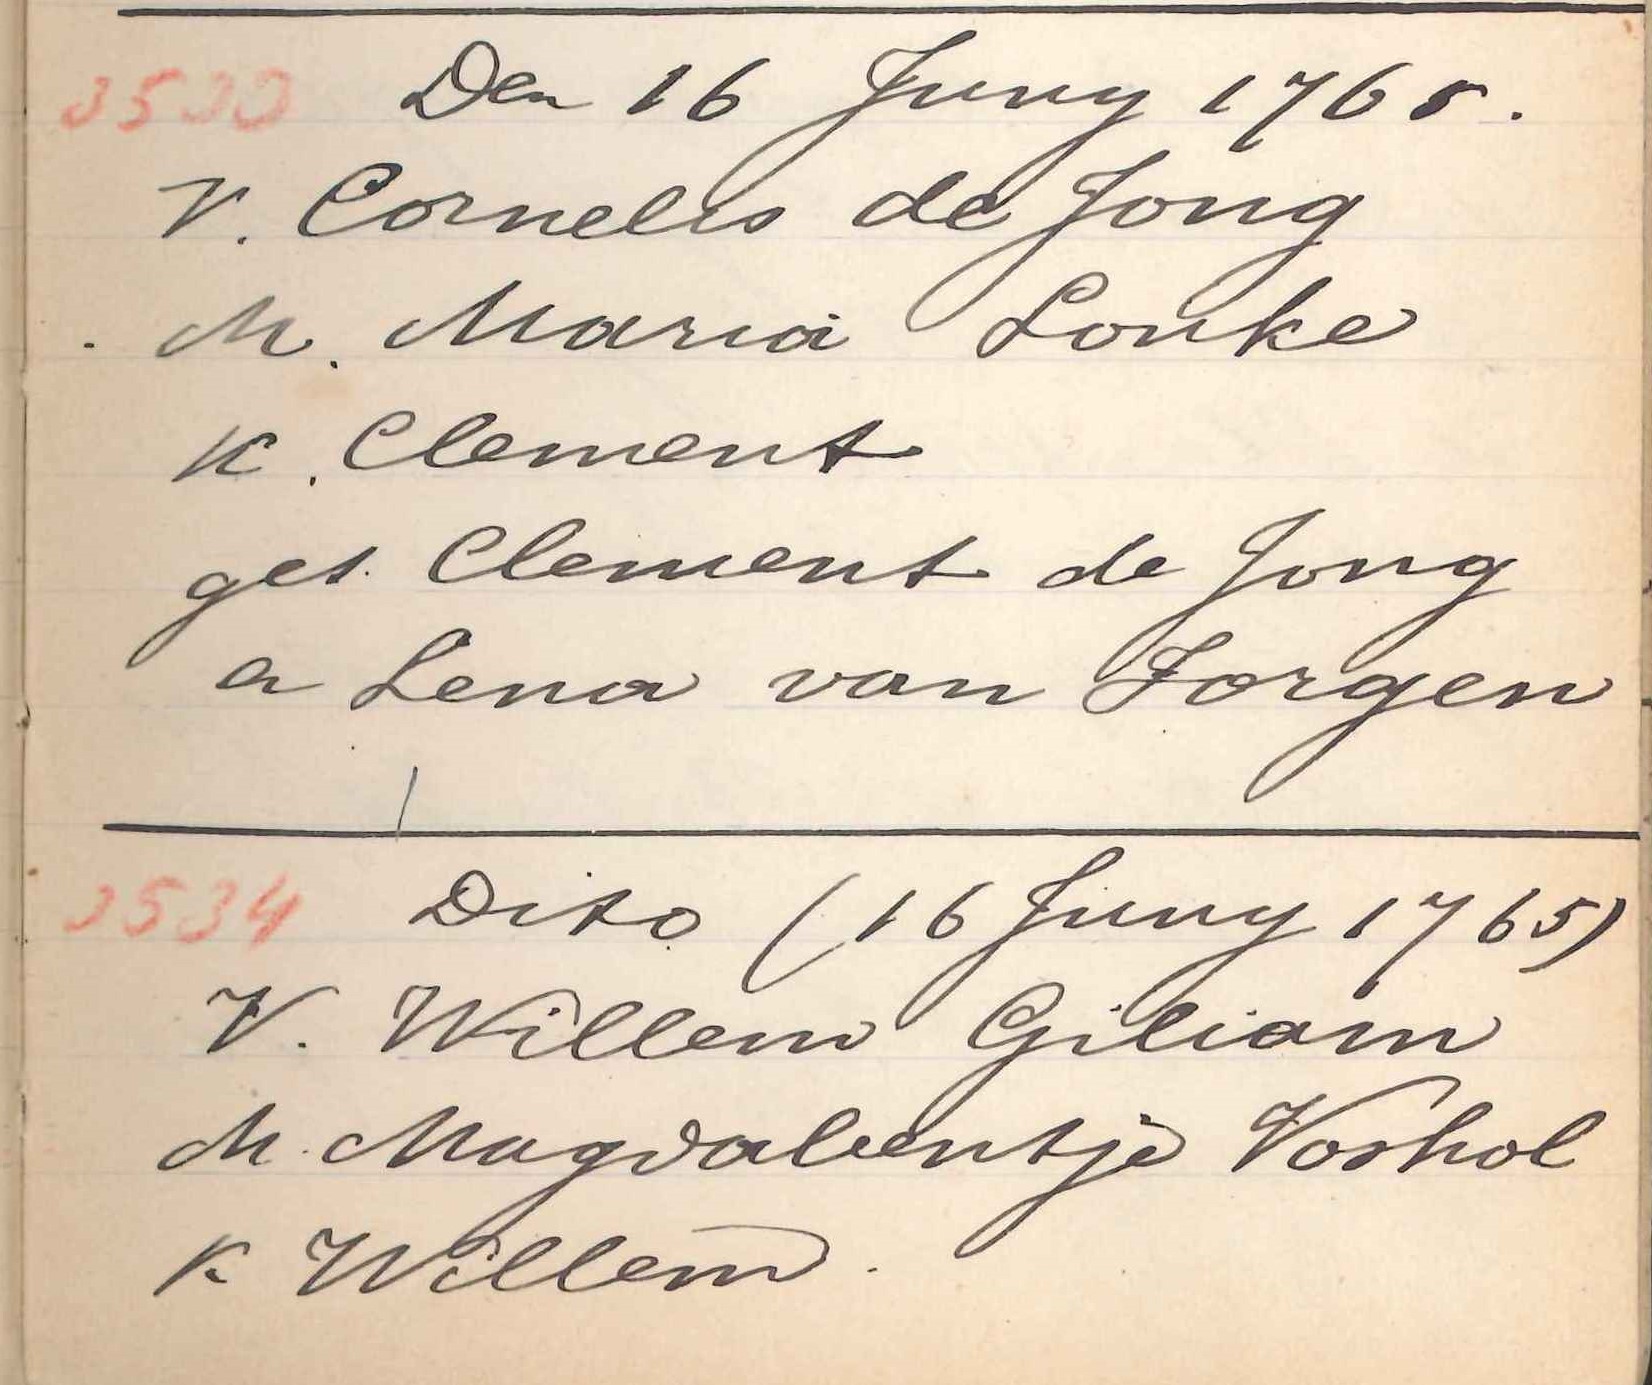 3533 Den 16 Juny 1765.
V. Cornelis de Jong
M. Maria Louke
K. Clement
get. Clement de Jong
a Lena van Jorgen
3534 Dito (16 Juny 1765)
V. Willem Giliam
M. Magdaleentje Voshol
K Willem.